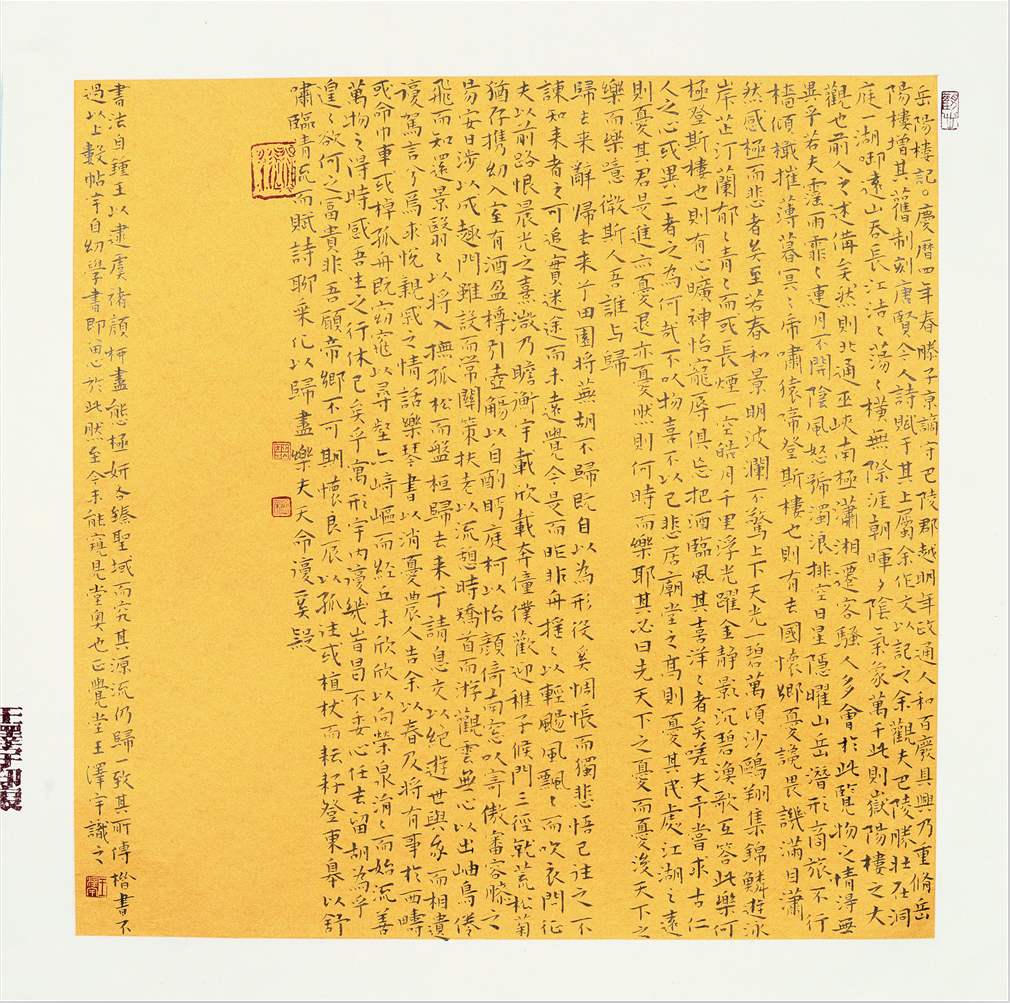 岳陽樓記。慶曆四年春滕子京謫守巴陵郡越明年政通人和百廢具興乃重脩岳
陽樓增其舊制刻唐賢今人詩賦于其上屬余作文以記之余觀夫巴陵勝壯在洞
庭一湖啣遠山吞長江浩〻蕩〻橫無際涯朝暉夕陰氣象萬千此則嶽陽樓之大
觀也前人之述備矣然則北通巫峽南極瀟湘遷客騷人多會於此覽物之情得無
異乎若夫霪雨霏〻連月不開陰風怒號濁浪排空日星隱曜山岳潛形商旅不行
檣傾檝摧薄暮冥〻帝嘯猿啼登斯樓也則有去國懷鄉憂讒畏譏滿目瀟
然感極而悲者矣至若春和景明波瀾不驚上下天光一碧萬頃沙鷗翔集錦鱗遊泳
岸芷汀蘭郁〻青〻而或長煙一空皓月千里浮光躍金靜影沉碧漁歌互答此樂何
極登斯樓也則有心曠神怡寵辱俱忘把酒臨風其喜洋〻者矣嗟夫予嘗求古仁
人之心或異二者之為何哉不以物喜不以己悲居廟堂之高則憂其民處江湖之遠
則憂其君是進亦憂退亦憂然則何時而樂耶其必曰先天下之憂而憂後天下之
樂而樂噫微斯人吾誰与歸
歸去来辭歸去来兮田園將蕪胡不歸既自以為形役奚惆悵而獨悲悟已往之不
諫知来者之可追實迷途而未遠覺今是而昨非舟搖〻以輕颺風飄〻而吹衣問征
夫以前路恨晨光之熹微乃瞻衡宇載欣載奔僮僕歡迎稚子候門三徑就荒松菊
猶存攜幼入室有酒盈樽引壺觴以自酌眄庭柯以怡顏倚南窓以寄傲審容膝之
易安日涉以成趣門雖設而常關策扶老以流憩時矯首而游觀雲無心以出岫鳥倦
飛而知還景翳〻以將入撫孤松而盤桓歸去来兮請息交以絕遊世與我而相遺
復駕言兮焉求悅親戚之情話樂琴書以消憂農人告余以春及將有事於西疇
或命巾車或棹孤舟既窈窕以尋壑亦崎嶇而經丘木欣欣以向榮泉涓〻而始流善
萬物之得時感吾生之行休已矣乎寓形宇內復幾時曷不委心任去留胡為乎
遑〻欲何之富貴非吾願帝鄉不可期懷良辰以孤往或植杖而耘耔登東皋以舒
嘯臨清流而賦詩聊乘化以歸盡樂夫天命復奚疑
書法自鍾王以逮虞褚顏柳盡態極妍各臻聖域而究其源流仍歸一致其所傳楷書不
過以上數帖宇自幼學書即留心於此然至今未能窺見堂奧也正覺堂王澤宇識之